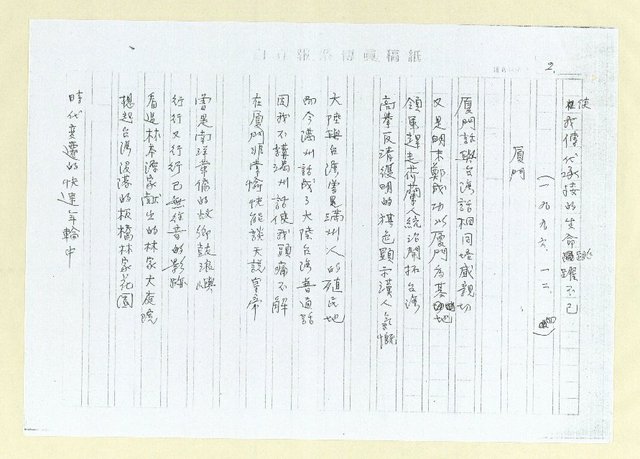 自立報系傳真稿紙
2.
使我傳代承接的生命躍不已
(一九九六.一二.)
廈門
廈門話與台灣話相同培感親切
又是明末鄭成功以廈門為基地
領軍趕走荷蘭人統治開拓台灣
高舉反清復明的旗色顯示漢人氣慨
大陸與台灣曾是滿州人的殖民地
而今滿州話成了大陸台灣普通話
因我不講滿州話使我頭痛不解
在廈門非常愉快能談天說皇帝
曾是南洋華僑的故鄉鼓浪嶼
行行又行行已無往昔的影跡
看過林本源家獻出的林家大庭院
想起台灣沒落的板橋林家花園
時代變遷的快速年輪中